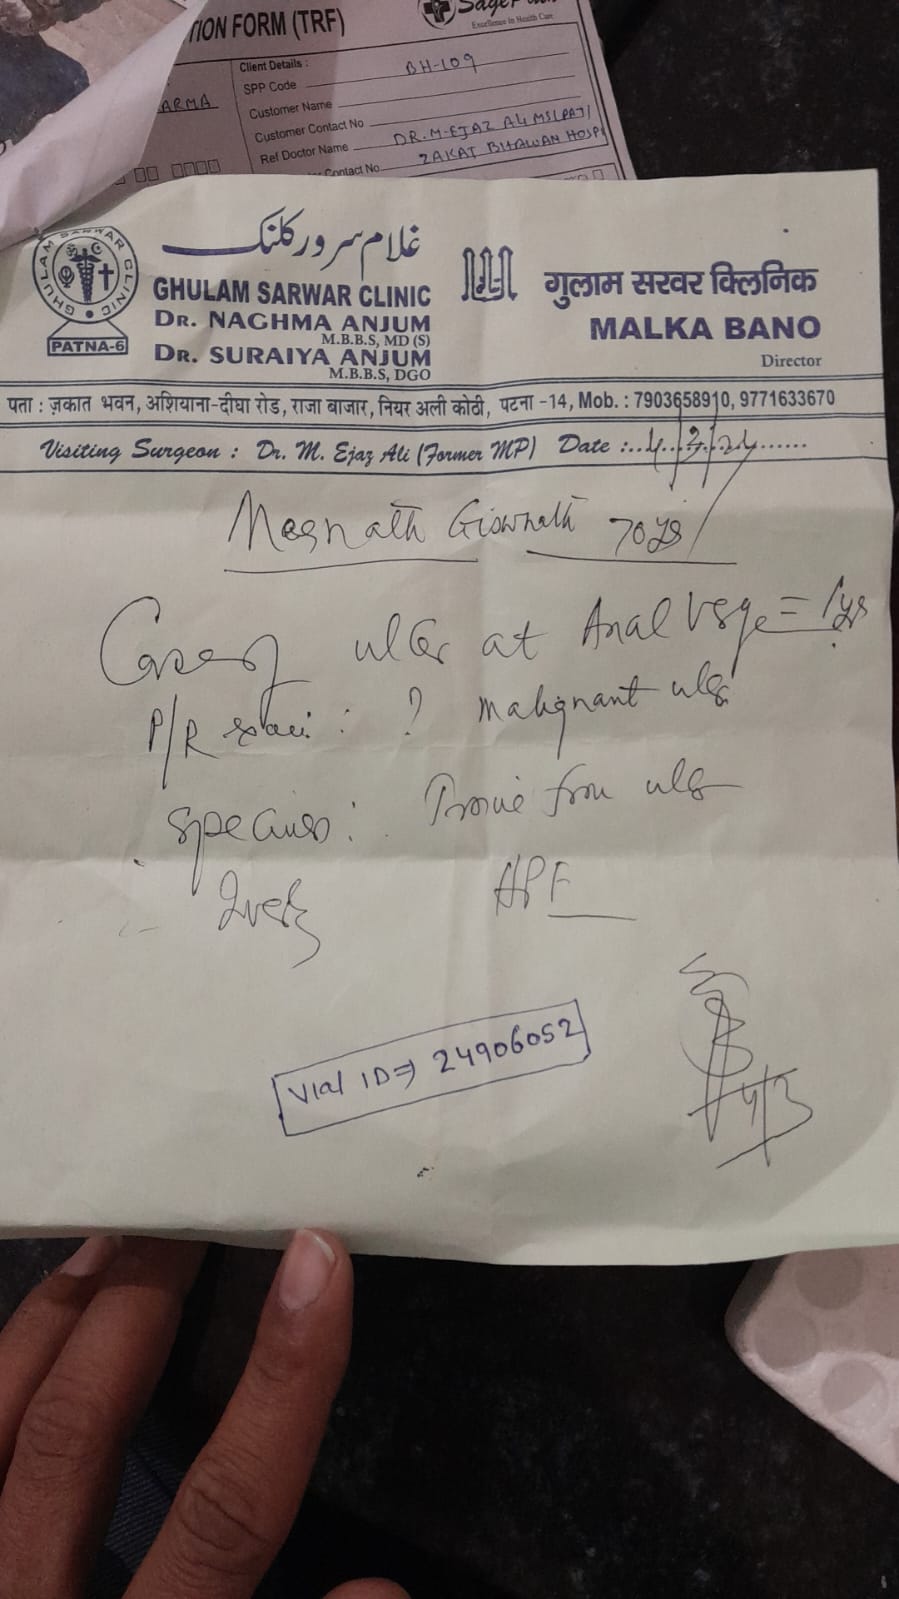 TION FORM (TRF)
Excellence in Health Care
Client Details :
SPP Code BH-109
ARMA
Customer Name
Customer Contact No
Ref Doctor Name DR. M-EJAZ ALI
ZAKAT BHAWAN HOSP
Contact No.
غلام سرور کلنک
GHULAM SARWAR CLINIC
गुलाम सरवर क्लिनिक
GHULAM SARWAR CLINIC
PATNA-6
DR. NAGHMA ANJUM
M.B.B.S, MD (S)
MALKA BANO
DR. SURAIYA ANJUM
M.B.B.S, DGO
Director
पता : ज़कात भवन, अशियाना-दीघा रोड, राजा बाजार, नियर अली कोठी, पटना -14, Mob. : 7903658910, 9771633670
Visiting Surgeon : Dr. M. Ejaz Ali (Former MP) Date :..4/3/24......
70 ys
Case of ulcer at Anal Verge = 1ys
P/R : ? Malignant ulcer
Specimen : from ulcer
HPE
Vial ID⇒ 24906052
4/3